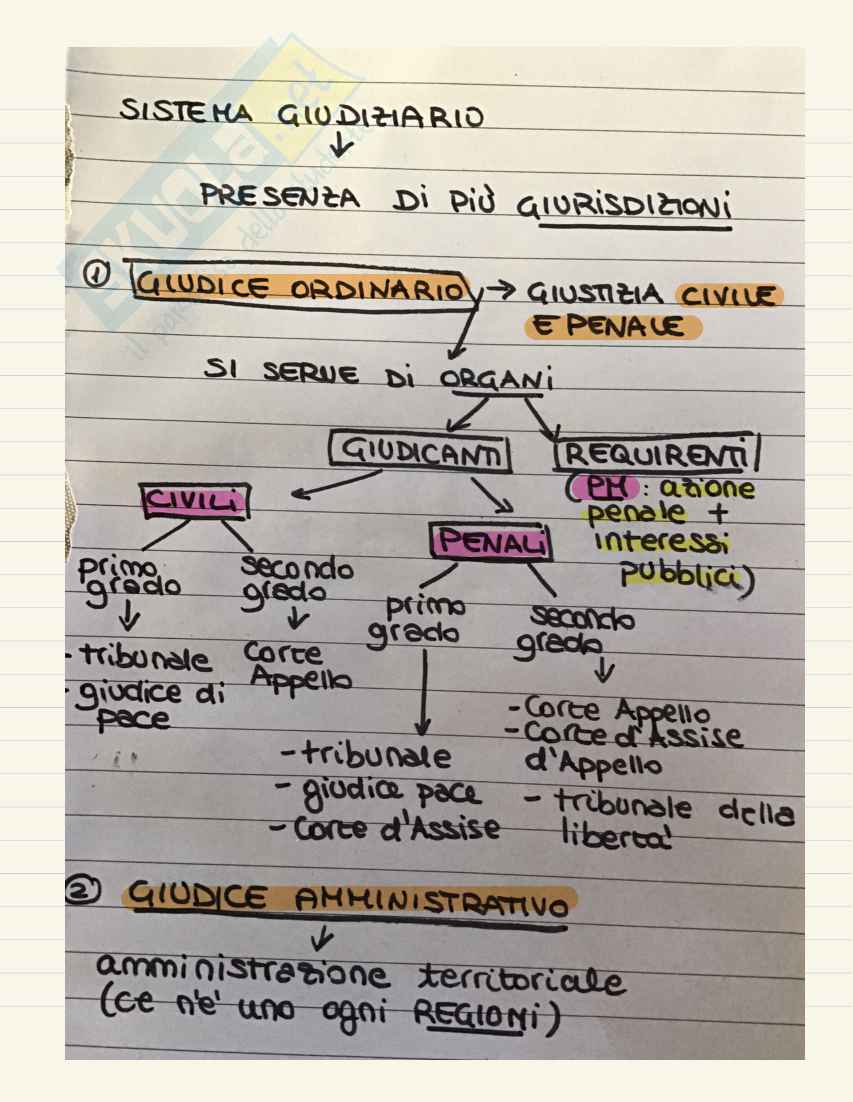 SISTEMA GIUDIZIARIO
↓
PRESENZA Di PIÙ GIURISDIZIONi
① GIUDICE ORDINARIO → GIUSTIZIA CIVILE
E PENALE
SI SERVE Di ORGANi
GIUDICANTi
REQUIRENTi
(PM: azione
penale +
interessi
pubblici)
CIVILi
PENALi
primo
grado
secondo
grado
↓
- tribunale
- giudice di
pace
↓
Corte
Appello
primo
grado
secondo
grado
- tribunale
- giudice pace
- Corte d'Assise
↓
- Corte Appello
- Corte d'Assise
d'Appello
- tribunale della
libertà
② GIUDICE AMMINISTRATIVO
↓
amministrazione territoriale
(ce n'è uno ogni REGIONi)
SKUOLA.net